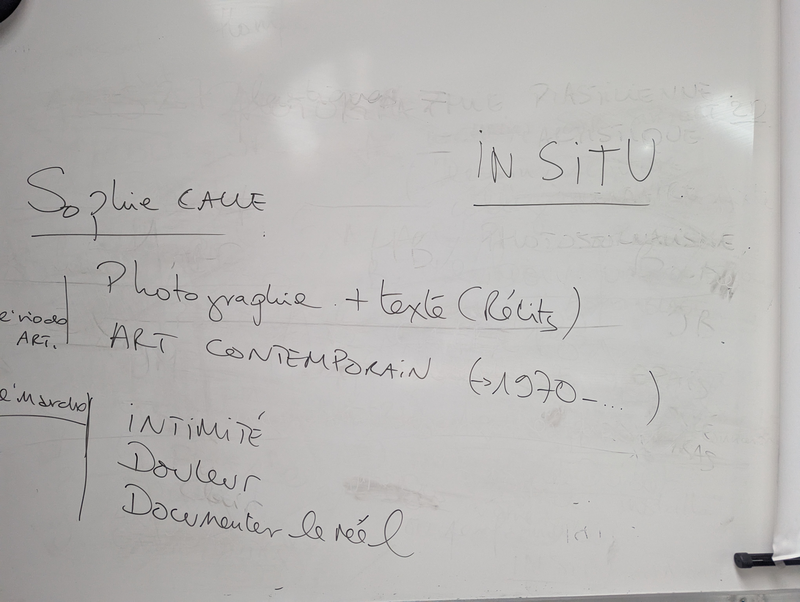 IN SITU
Sophie CALLE
Photographie + texte (Récits)
ART CONTEMPORAIN (→1970-...)
ART.
INTIMITÉ
Douleur
Documenter le réél